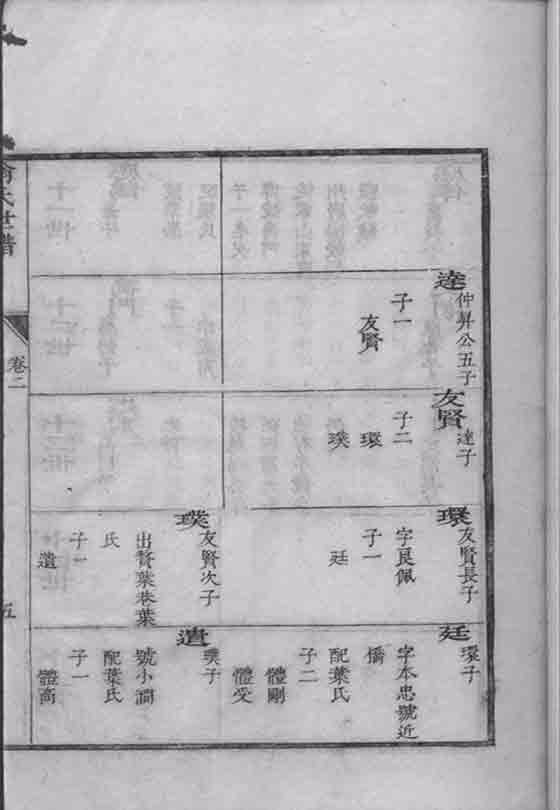 達
仲昇公五子
子一
友賢
友賢
達子
子二
環
璞
環
友賢長子
字良佩
子一
廷
璞
友賢次子
出贅葉巷葉
氏
子一
遺
廷
環子
字本忠號近
橋
配葉氏
子二
體剛
體受
遺
璞子
號小澗
配葉氏
子一
體高
氏世譜
卷二
五